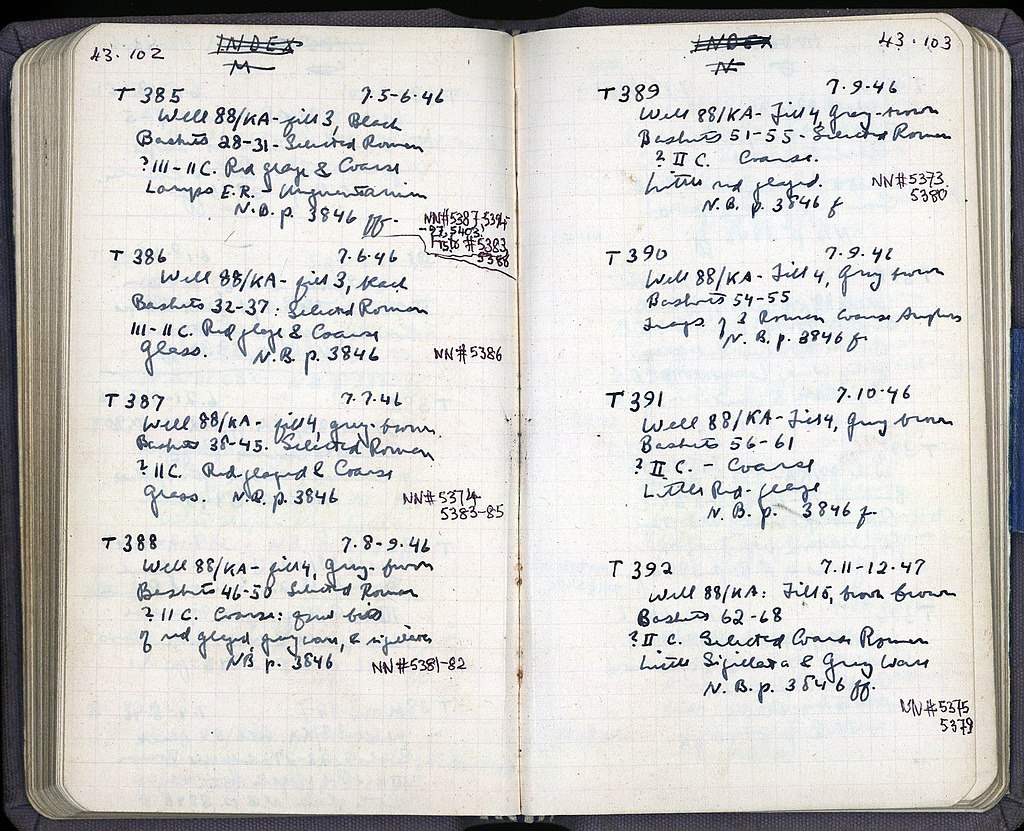 43.102
INDEX
M
T 385 7.5-6.46
Well 88/KA - fill 3, Black
Baskets 28-31 - Selected Roman
? III-II C. Red glaze & Coarse
Lamps E.R. - Unguentarium
N.B. p. 3846 ff.
NN#5387, 5394
-97, 5403,
#5383
5388
T 386 7.6.46
Well 88/KA - fill 3, Black
Baskets 32-37: Selected Roman
III-II C. Red glaze & Coarse
Glass. N.B. p. 3846
NN#5386
T 387 7.7.46
Well 88/KA - fill 4, gray-brown
Baskets 38-45. Selected Roman
? II C. Red glazed & Coarse
Glass. N.B. p. 3846
NN#5374
5383-85
T 388 7.8-9.46
Well 88/KA - fill 4, Gray-brown
Baskets 46-50 Selected Roman
? II C. Coarse: few bits
of red glazed, gray ware, & sigillata
NB p. 3846
NN#5381-82
43.103
INDEX
N
T 389 7.9.46
Well 88/KA - Fill 4, Gray-brown
Baskets 51-55 - Selected Roman
? II C. Coarse.
Little red glazed.
N.B. p. 3846 f
NN#5373
5380
T 390 7.9.46
Well 88/KA - Fill 4, Gray brown
Baskets 54-55
Frags of 3 Roman Coarse Amphoras
N.B. p. 3846 f.
T 391 7.10.46
Well 88/KA - Fill 4, Gray brown
Baskets 56-61
? II C. - Coarse
Little Red-glaze
N.B. p. 3846 f.
T 392 7.11-12.47
Well 88/KA: Fill 5, brown
Baskets 62-68
? II C. Selected Coarse Roman
Little Sigillata & Gray Ware
N.B. p. 3846 ff.
NN#5375
5379